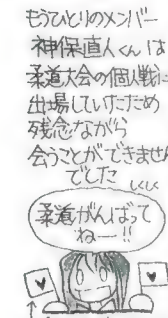 もうひとりのメンバー
神保直人くんは
柔道大会の個人戦に
出場していたため
残念ながら
会うことができません
でした
しくしく
柔道がんばって
ねー!!